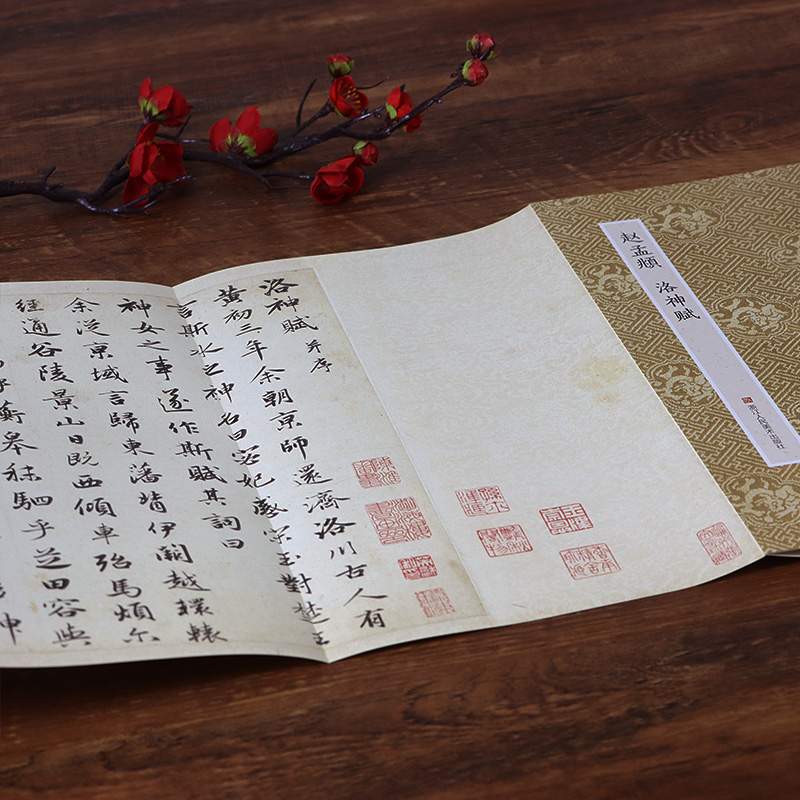 赵孟頫 洛神赋
浙江人民美术出版社
洛神賦 并序
黄初三年余朝京師還濟洛川古人有
言斯水之神名曰宓妃感宋玉對楚王
神女之事遂作斯賦其詞曰
余從京域言歸東藩背伊闕越轘轅
經通谷陵景山日既西傾車殆馬煩尒
乎蘅皋秣駟乎芝田容與